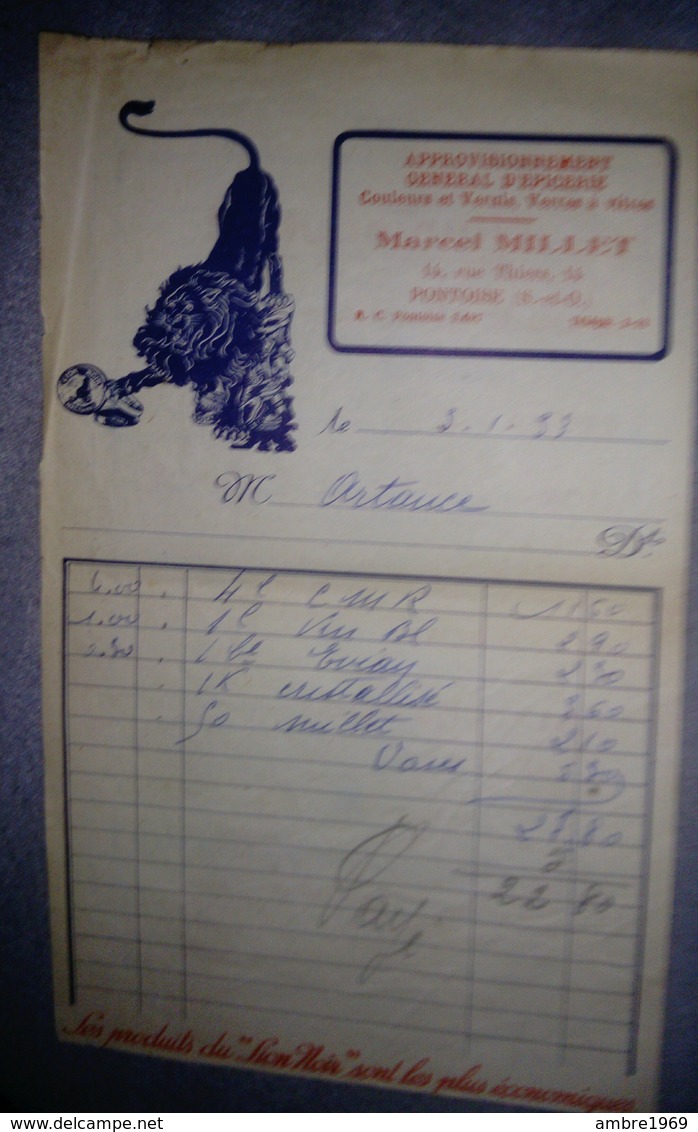 APPROVISIONNEMENT
GENERAL D'EPICERIE
Couleurs et Vernis, Verres à vitres
Marcel MILLET
14, rue Thiers, 14
PONTOISE (S.-et-O.)
le 3.1.33
M Artance
Dt
6.00 4l CMR 11 50
1.00 1l Vin Bl 2 90
1 Evian 2 30
1K cristallisé 3 60
50 millet 2 10
27 80
5
22 80
Les produits du "Lion Noir" sont les plus économiques
delcampe.net
ambre1969